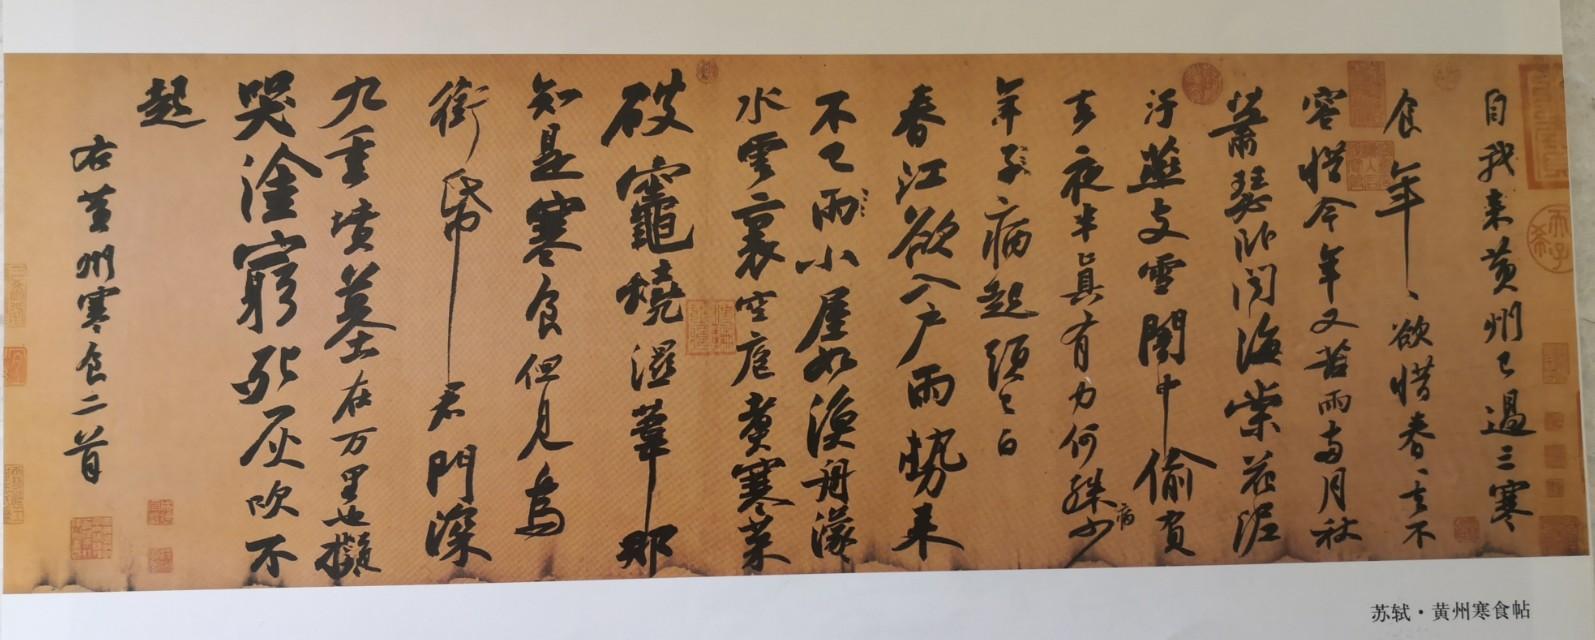 自我来黄州已過三寒
食年〻欲惜春〻去不
容惜今年又苦雨兩月秋
蕭瑟卧聞海棠花泥
汙燕支雪闇中偷負
去夜半真有力何殊少
年子病起須已白
病
春江欲入户雨勢来
不已雨小屋如漁舟濛〻
水雲裏空庖煮寒菜
破竈燒濕葦那
知是寒食但見烏
銜帋君門深
九重墳墓在万里也擬
哭塗窮死灰吹不
起
右黄州寒食二首
苏轼·黄州寒食帖